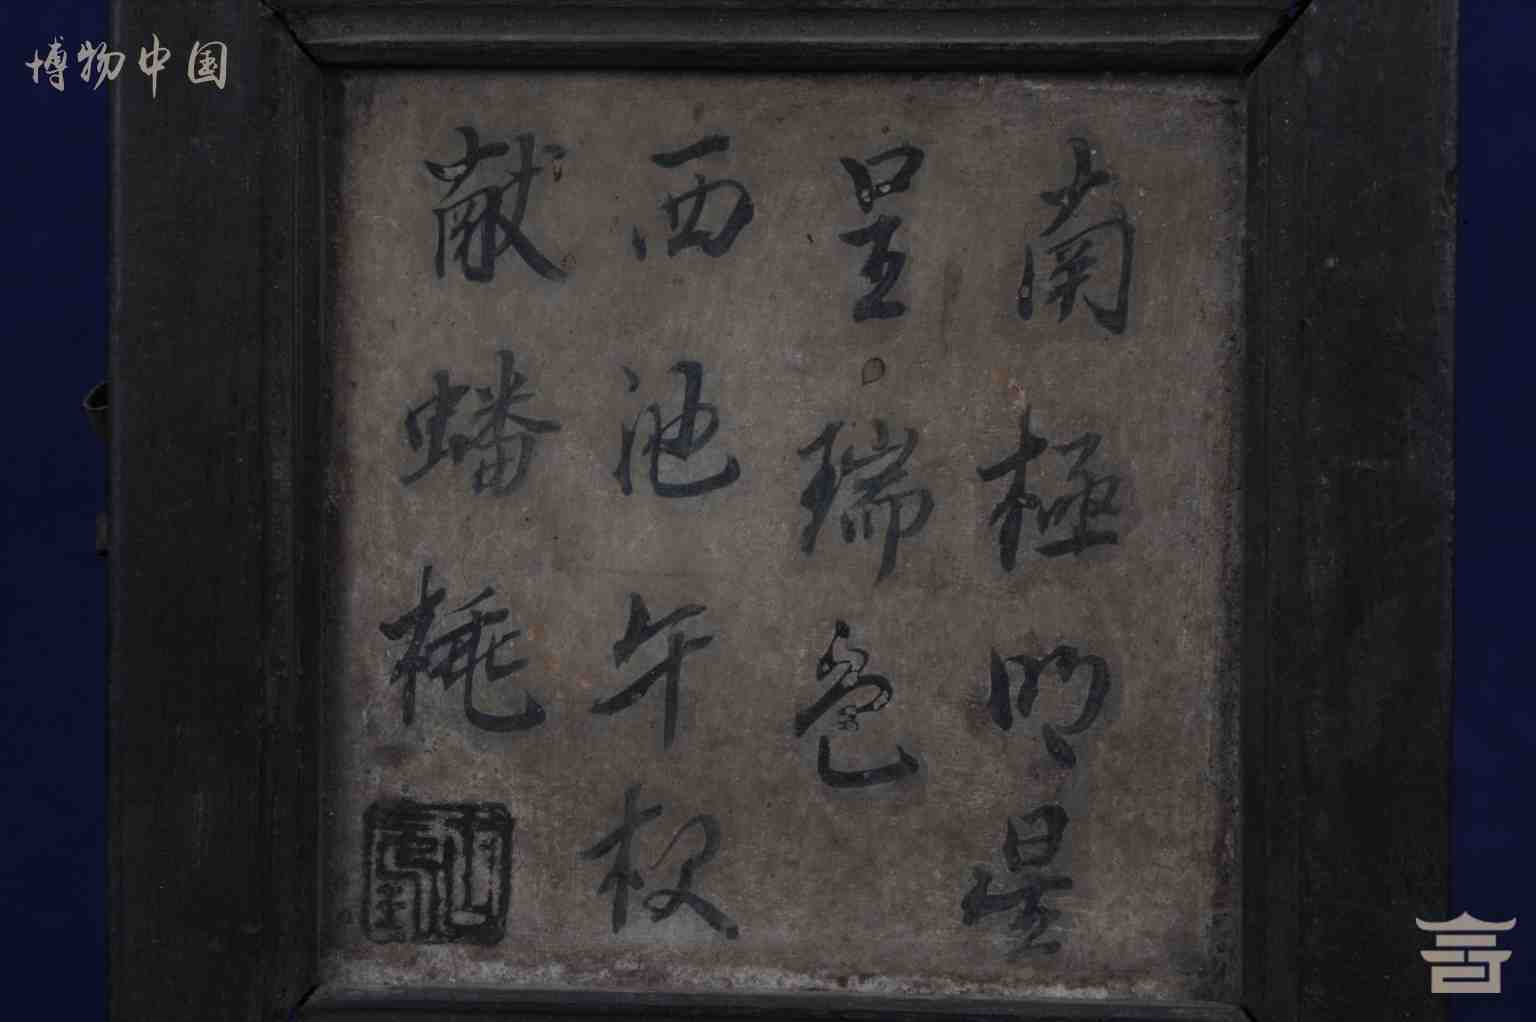 博物中国
南極明星
呈瑞色
西池午杈
献蟠桃